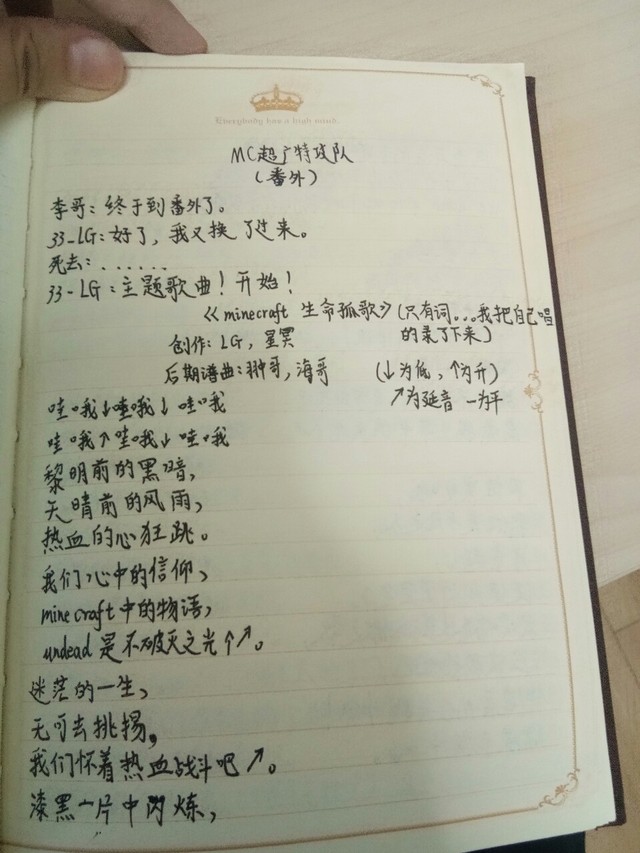 Everybody has a high mind.
MC超广特攻队
(番外)
李哥:终于到番外了。
33-LG:好了,我又换了过来。
死去:......
33-LG:主题歌曲!开始!
《minecraft 生命孤歌》(只有词...我把自己唱
的录了下来)
创作:LG,星冥
后期谱曲:翀哥,海哥 (↓为低,↑为升)
↗为延音 一为平
哇哦↓哇哦↓哇哦
哇哦↑哇哦↓哇哦
黎明前的黑暗,
天晴前的风雨,
热血的心狂跳。
我们心中的信仰,
minecraft中的物语,
undead是不破灭之光↑↗。
迷茫的一生,
无可去挑
我们怀着热血战斗吧↗。
漆黑一片中闪炼,